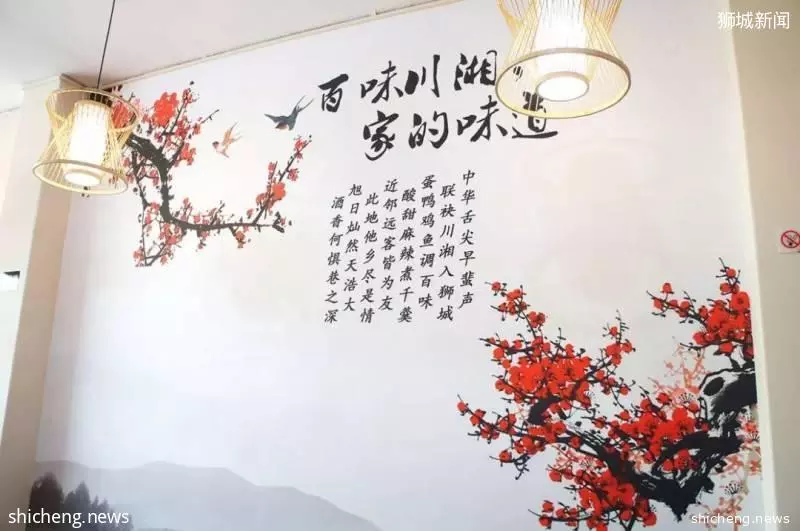 狮城新闻
百味川湘
家的味道
中华舌尖早蜚声
联袂川湘入狮城
蛋鸭鸡鱼调百味
酸甜麻辣煮千羹
近邻远客皆为友
此地他乡尽是情
旭日灿然天浩大
酒香何惧巷之深
shicheng.news
shicheng.news